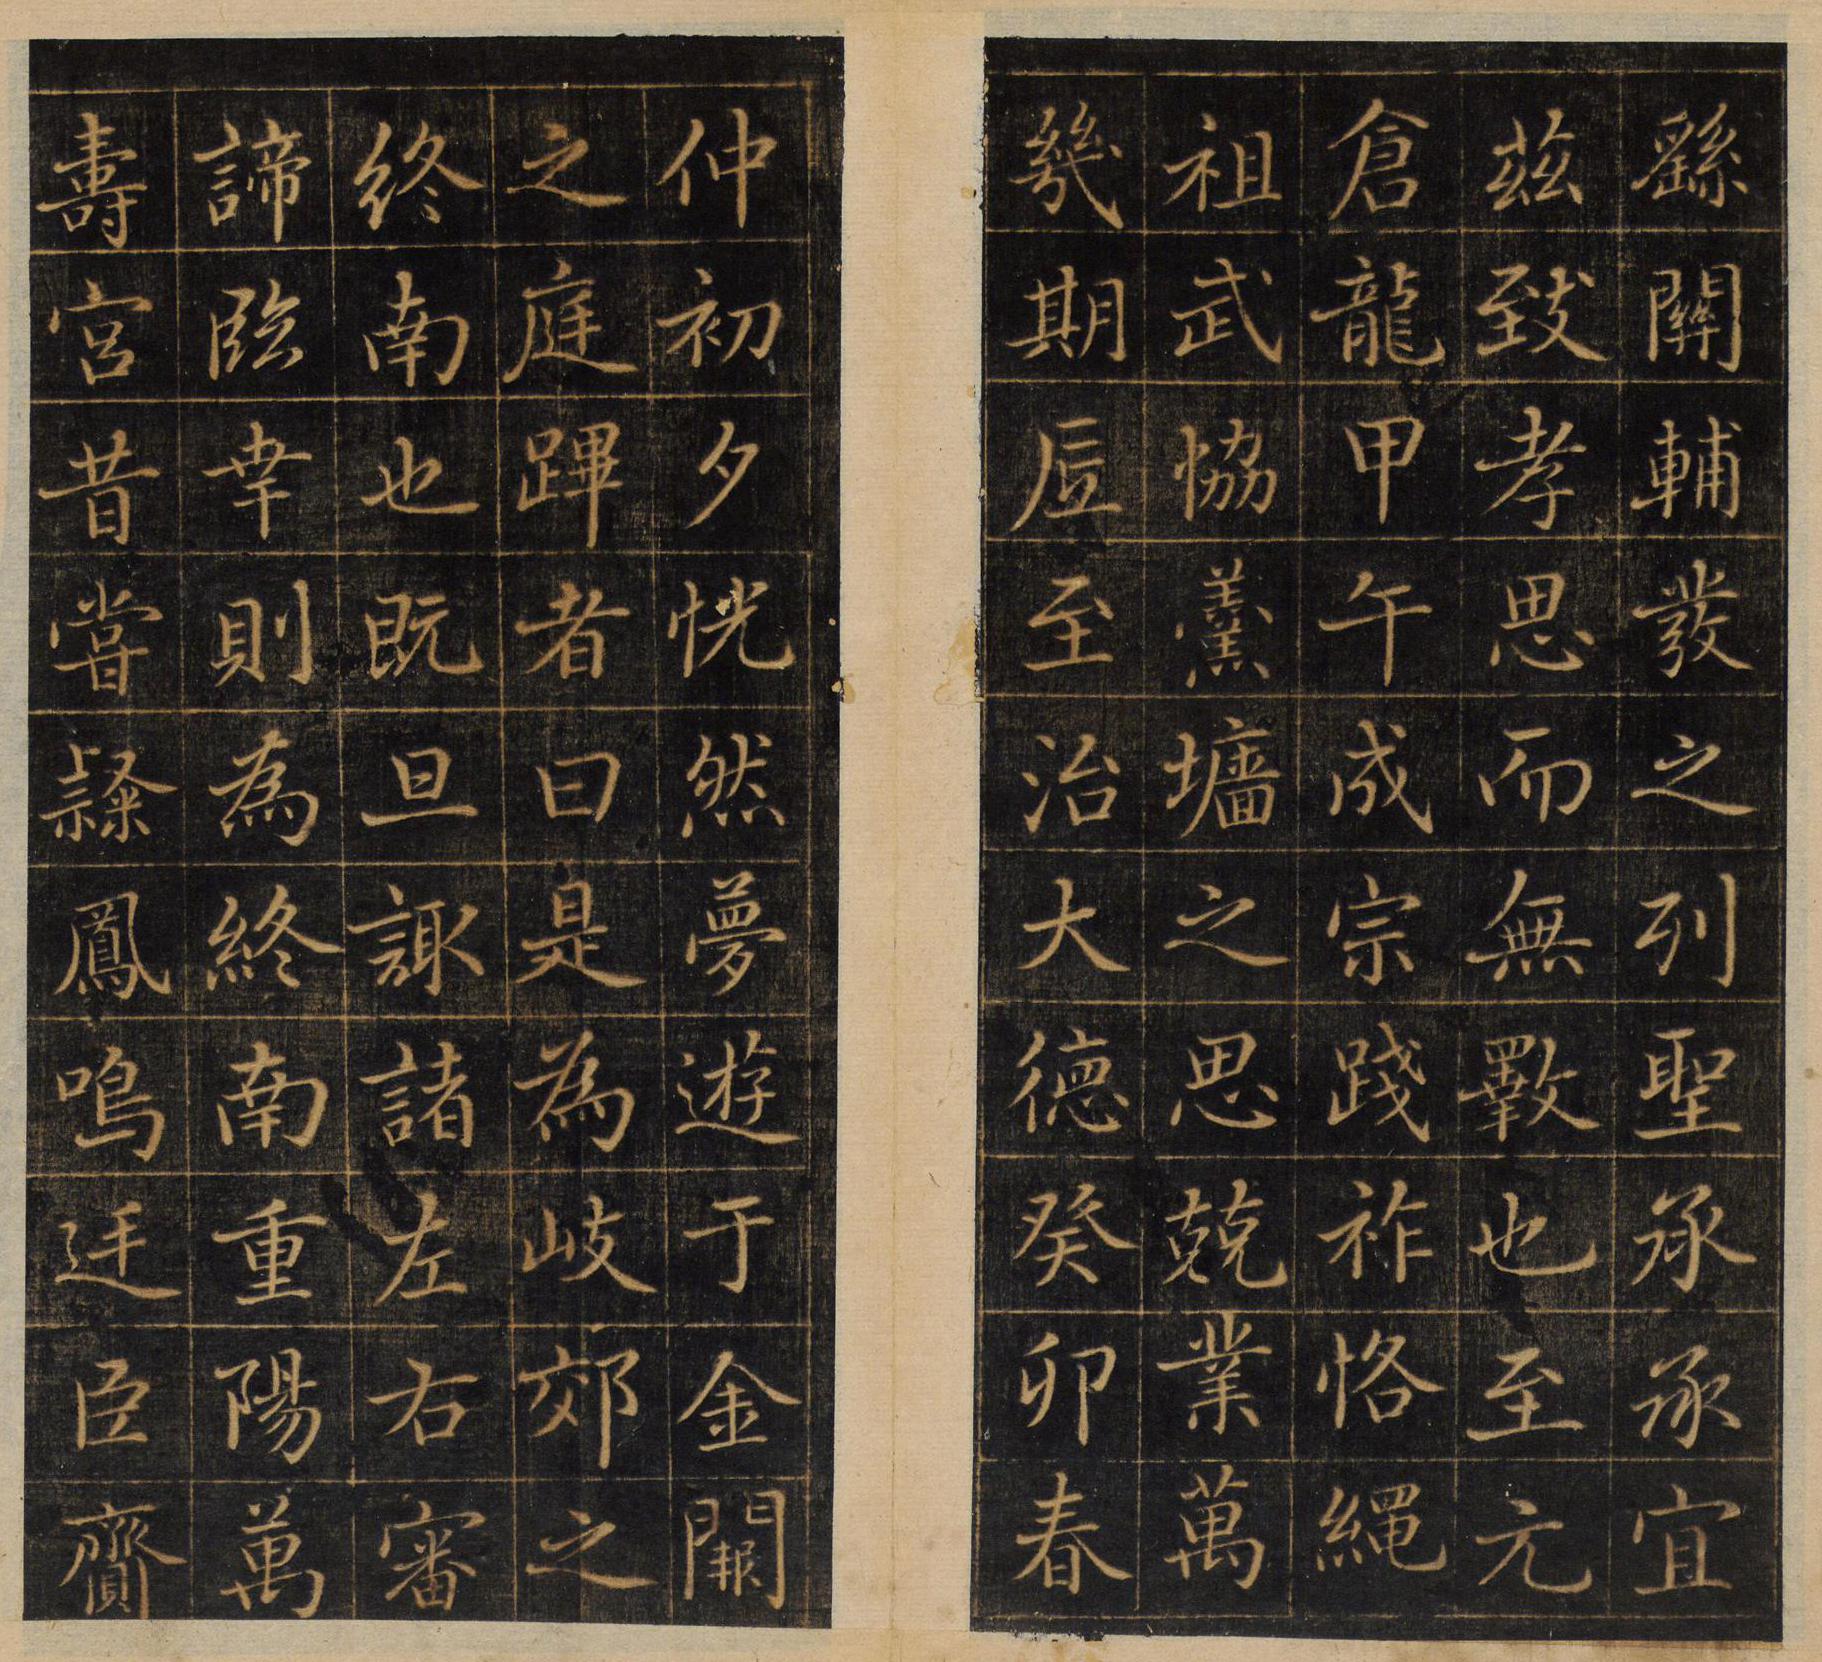 繇關輔發之列聖承承宜
茲致孝思而無斁也至元
倉龍甲午成宗踐祚恪繩
祖武恊羹墻之思兢業萬
幾期底至治大德癸卯春
仲初夕恍然夢遊于金闕
之庭蹕者曰是為岐郊之
終南也既旦諏諸左右審
諦臨幸則為終南重陽萬
壽宮昔嘗隸鳳鳴迋臣齎